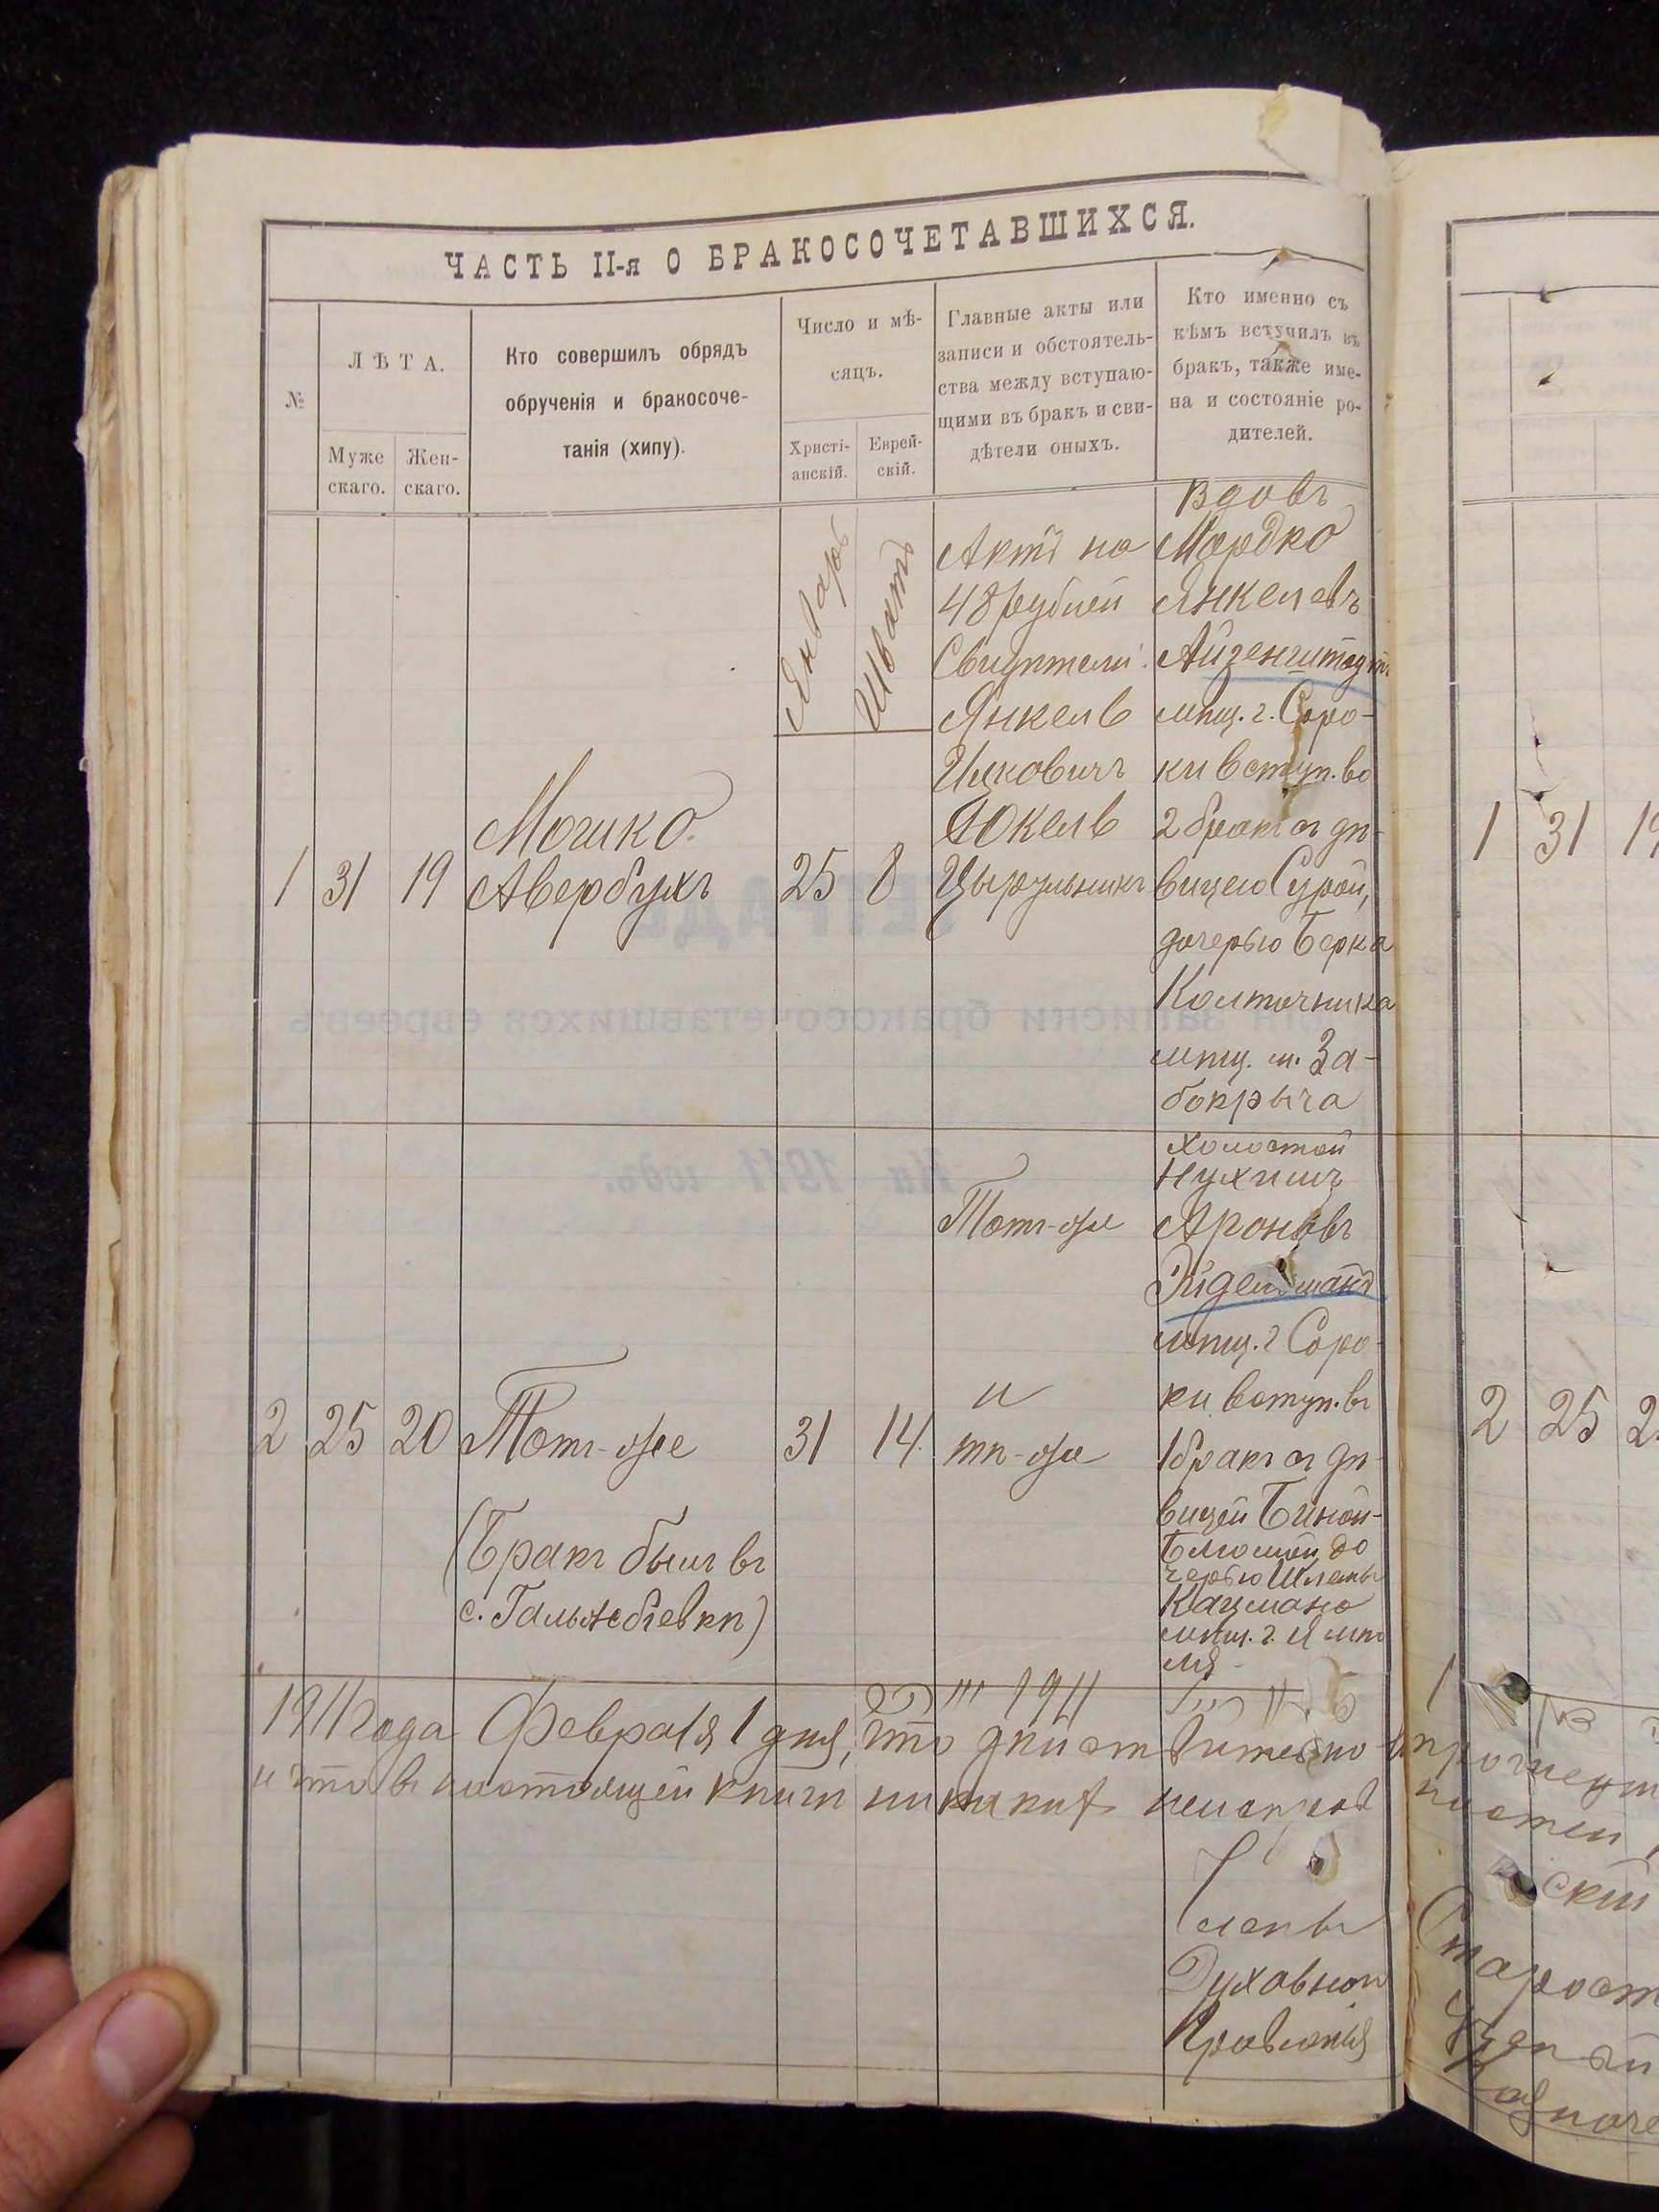 ЧАСТЬ II-я О БРАКОСОЧЕТАВШИХСЯ.
№
ЛѢТА.
Муже
скаго.
Жен-
скаго.
Кто совершилъ обрядъ
обрученія и бракосоче-
танія (хипу).
Число и мѣ-
сяцъ.
Христі-
анскій.
Еврей-
скій.
Главные акты или
записи и обстоятель-
ства между вступаю-
щими въ бракъ и сви-
дѣтели оныхъ.
Кто именно съ
кѣмъ вступилъ въ
бракъ, также име-
на и состояніе ро-
дителей.
1
31
19
Мошко
Авербухъ
Январь
25
Шватъ
8
Актъ на
48 рублей
Свидѣтели:
Янкель
Ицковичъ
Юкель
Цырульникъ
Вдовъ
Мордко
Янкелевъ
Айзенштадтъ
мѣщ. г. Соро-
ки вступ. во
2 бракъ съ дѣ-
вицею Сурой,
дочерью Берка
Колточника
мѣщ. м. За-
бокрыча
2
25
20
Тотъ-же
(Бракъ былъ въ
с. Гальжбіевкѣ)
31
14
Тотъ-же
и
тѣ-же
Холостой
Нухимъ
Ароновъ
Эйдельманъ
мѣщ. г. Соро-
ки вступ. въ
1 бракъ съ дѣ-
вицей Биной-
Блюмой до
черью Шлемы
Кацмана
мѣщ. г.
1911 года Февраля 1 дня, что дѣйствительно
и что въ настоящей книги никакихъ
Члены
Духовнаго
Правленія
1 31 19
2 25 2
скій
Старост